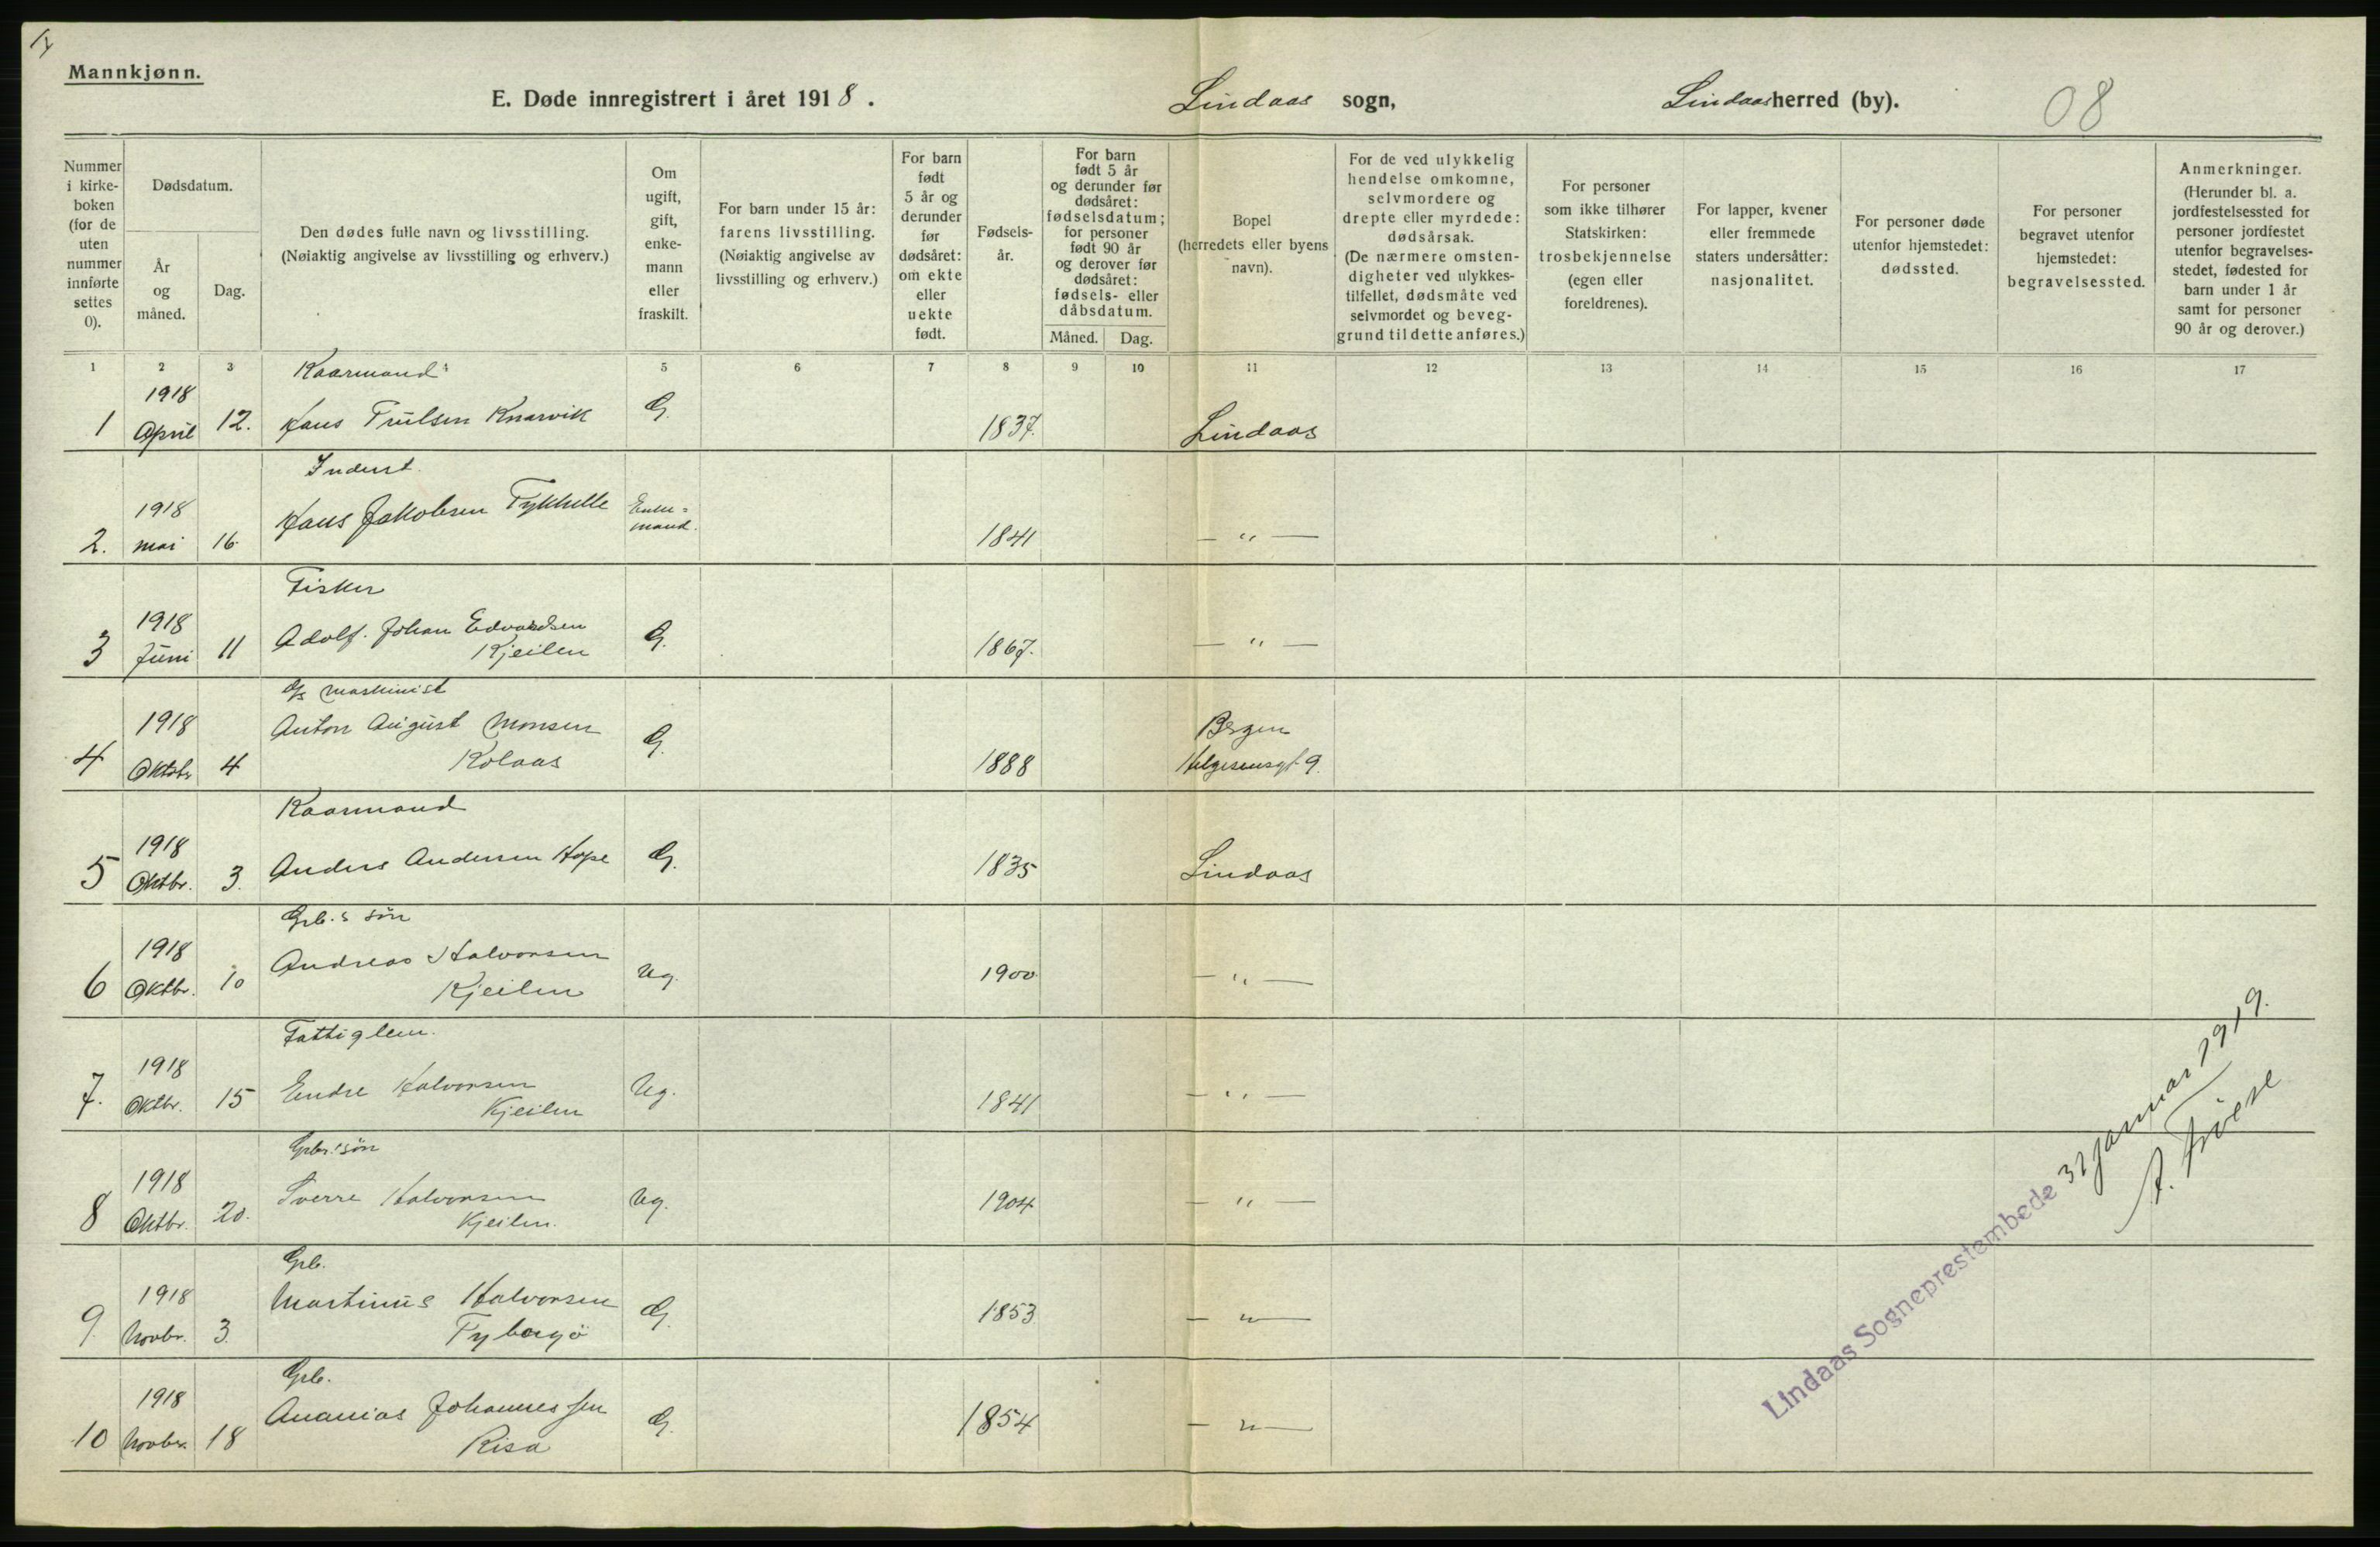 Mannkjønn.
E. Døde innregistrert i året 1918. Lindaas sogn, Lindaas herred (by). 08
Nummer i kirke-boken (for de uten nummer innførte settes 0).
Dødsdatum.
År og måned.
Dag.
Den dødes fulle navn og livsstilling.
(Nøiaktig angivelse av livsstilling og erhverv.)
Om ugift, gift, enke-mann eller fraskilt.
For barn under 15 år: farens livsstilling. (Nøiaktig angivelse av livsstilling og erhverv.)
For barn født 5 år og derunder før dødsåret: om ekte eller uekte født.
Fødsels-år.
For barn født 5 år og derunder før dødsåret: fødselsdatum; for personer født 90 år og derover før dødsåret: fødsels- eller dåbsdatum.
Måned. Dag.
Bopel (herredets eller byens navn).
For de ved ulykkelig hendelse omkomne, selvmordere og drepte eller myrdede: dødsårsak. (De nærmere omsten-digheter ved ulykkes-tilfellet, dødsmåte ved selvmordet og beveg-grund til dette anføres.)
For personer som ikke tilhører Statskirken: trosbekjennelse (egen eller foreldrenes).
For lapper, kvener eller fremmede staters undersåtter: nasjonalitet.
For personer døde utenfor hjemstedet: dødssted.
For personer begravet utenfor hjemstedet: begravelsessted.
Anmerkninger. (Herunder bl. a. jordfestelsessted for personer jordfestet utenfor begravelses-stedet, fødested for barn under 1 år samt for personer 90 år og derover.)
1 2 3 5 6 7 8 9 10 11 12 13 14 15 16 17
Kaarmand
1 1918 April 12. Hans Trulsen Knarvik G. 1837. Lindaas
Inderst
2. 1918 mai 16. Hans Jakobsen Tykhelle Enke=mand. 1841 — " —
Fisker
3 1918 Juni 11 Adolf Johan Edvardsen Kjeilen G. 1867. — " —
maskinist
4 1918 Oktobr 4 Anton August Monsen Kolaas G. 1888 Bergen Helgesensgt 9.
Kaarmand
5 1918 Oktbr. 3. Anders Andersen Hope G. 1835 Lindaas
Grb.s søn
6 1918 Oktbr. 10 Andreas Halvorsen Kjeilen Ug. 1900 — " —
Fattiglem.
7. 1918 Oktbr. 15 Endre Halvorsen Kjeilen Ug. 1841 — " —
Grbr.s søn
8 1918 Oktbr. 20. Sverre Halvorsen Kjeilen. Ug. 1904 — " —
Grb.
9. 1918 Novbr. 3. Martinus Halvorsen Fybergö G. 1853 — " —
Grb.
10 1918 Novbr. 18 Ananias Johannessen Risa G. 1854 — " —
Lindaas Sogneprestembede 31 januar 1919.